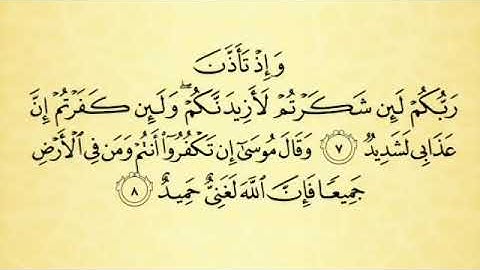 وَإِذْ تَأَذَّنَ
رَبُّكُمْ لَئِن شَكَرْتُمْ لَأَزِيدَنَّكُمْ ۖ وَلَئِن كَفَرْتُمْ إِنَّ
عَذَابِى لَشَدِيدٌ ٧ وَقَالَ مُوسَىٰٓ إِن تَكْفُرُوٓا۟ أَنتُمْ وَمَن فِى ٱلْأَرْضِ
جَمِيعًا فَإِنَّ ٱللَّهَ لَغَنِىٌّ حَمِيدٌ ٨